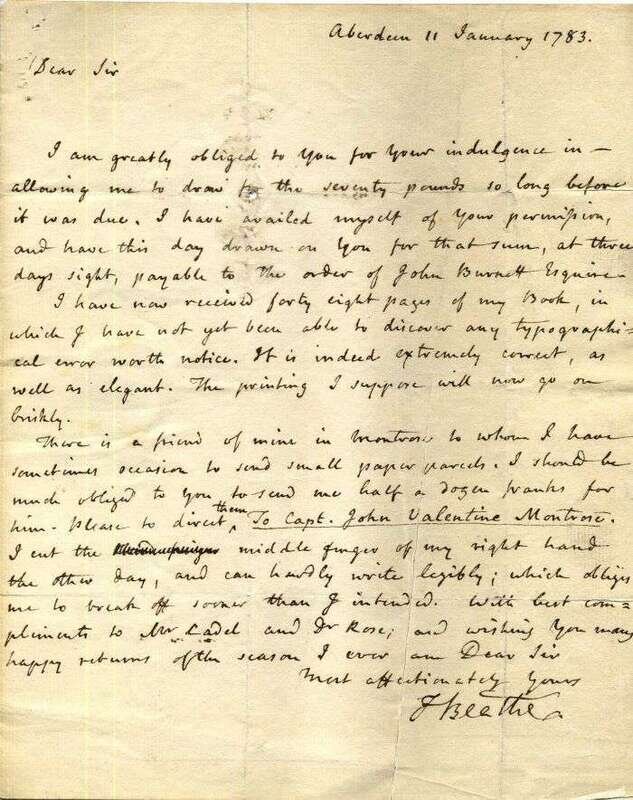 Aberdeen 11 January 1783.
Dear Sir
I am greatly obliged to You for Your indulgence in-
allowing me to draw for the seventy pounds so long before
it was due. I have availed myself of Your permission,
and have this day drawn on You for that sum, at three
days sight, payable to the order of John Burnett Esquire.
I have now received forty eight pages of my Book, in
which I have not yet been able to discover any typographi=
cal error worth notice. It is indeed extremely correct, as
well as elegant. The printing I suppose will now go on
briskly.
There is a friend of mine in Montrose to whom I have
sometimes occasion to send small paper parcels. I should be
much obliged to You to send me half a dozen franks for
him. Please to direct them, To Capt. John Valentine Montrose.
I cut the middle finger of my right hand
the other day, and can hardly write legibly; which obliges
me to break off sooner than I intended. With best com=
pliments to Mr Cadel and Dr Rose; and wishing You many
happy returns of the season I ever am Dear Sir
most affectionately Yours
J Beattie